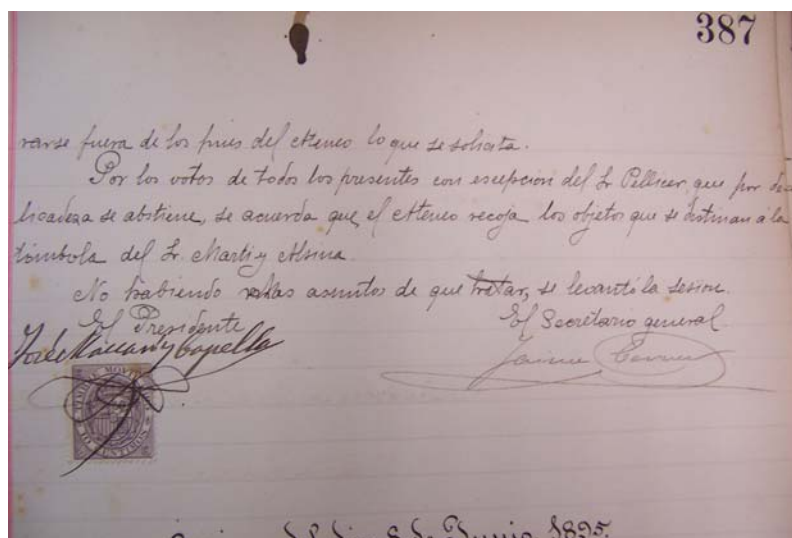 387
rarse fuera de los fines del Ateneo lo que se solicita.
Por los votos de todos los presentes con escepcion del Sr Pellicer, que por de
licadeza se abstiene, se acuerda que, el Ateneo recoja los objetos que se destinan á la
tómbola del Sr. Marti y Alsina.
No habiendo mas asuntos de que tratar, se levantó la sesion.
El Presidente
El Secretario general
José y Capella
Jaime
TIMBRE MOVIL
10 CENTIMOS
Sesion del dia 8 de Junio 1895.